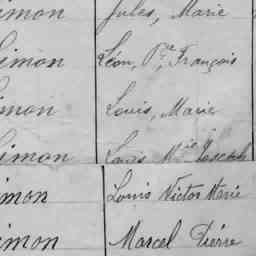 Simon Jules, Marie
Simon Léon, Pre, François
Simon Louis, Marie
Simon Louis Mie Joseph
Simon Louis Victor Marie
Simon Marcel Pierre